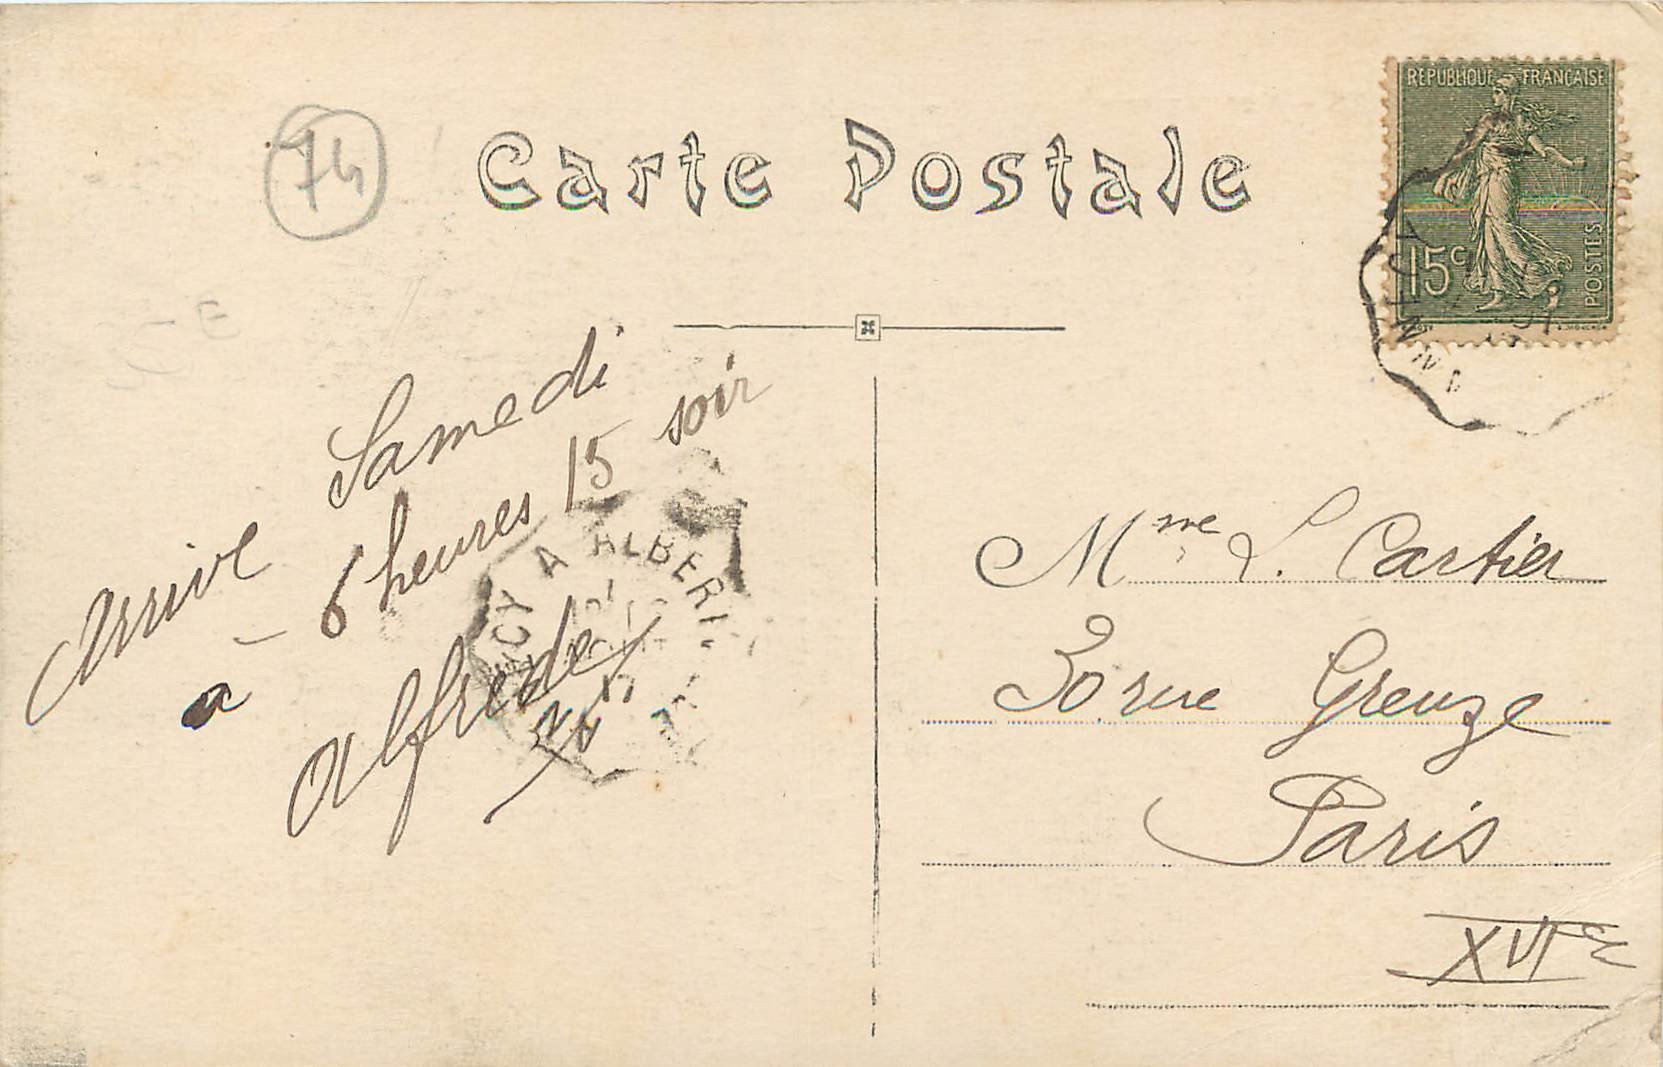 74
Carte Postale
RÉPUBLIQUE FRANÇAISE
15c
POSTES
Arrive Samedi
à 6 heures 15 soir
Alfred
CY A ALBER
Mme L. Cartier
30 rue Greuze
Paris
XVIe